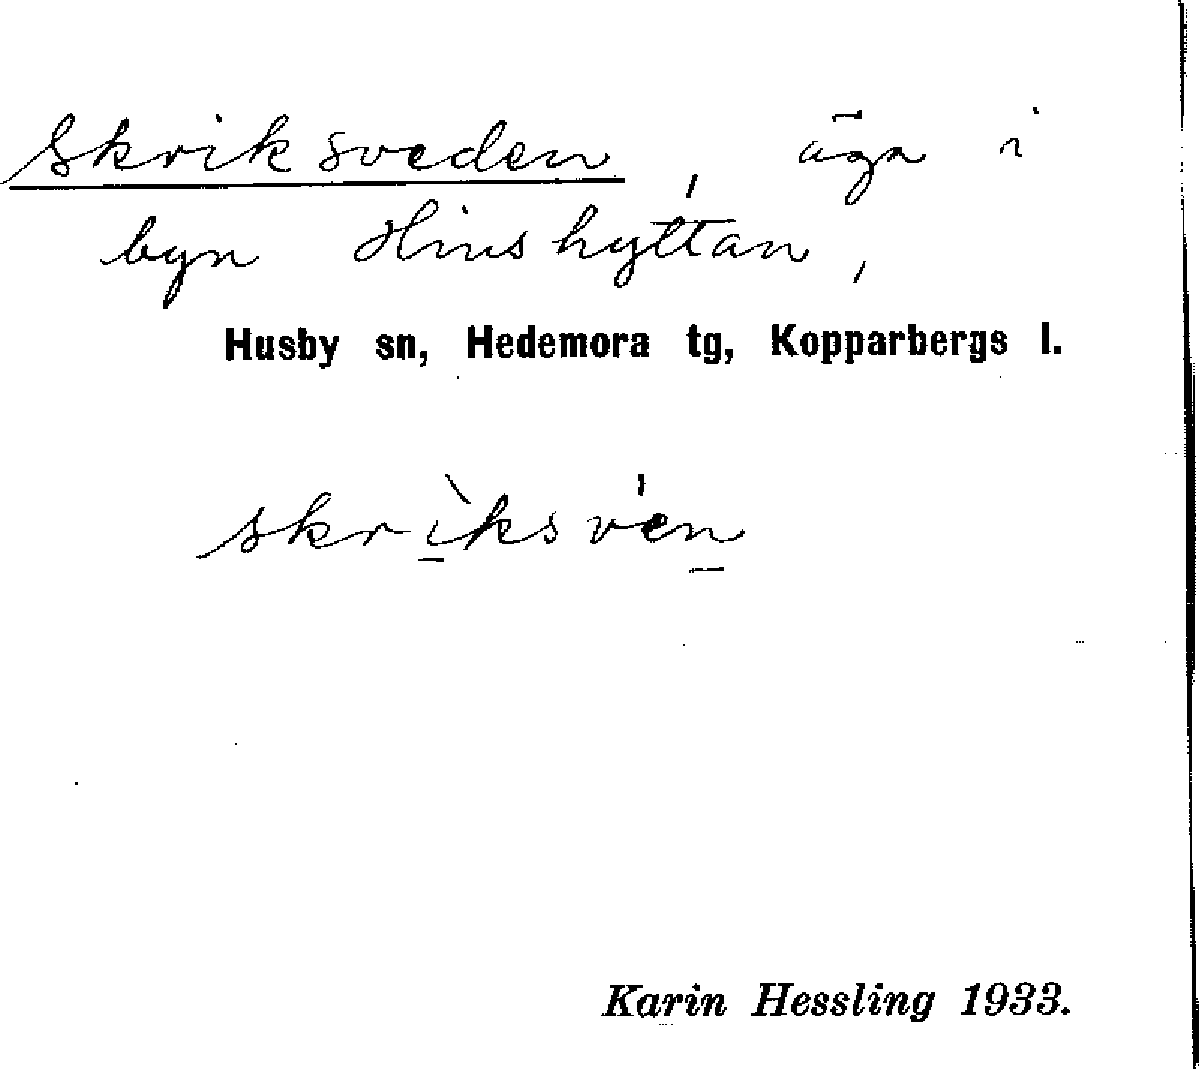 Skriksveden, äga i
byn Hinshyttan,
Husby sn, Hedemora tg, Kopparbergs l.
skrìksven
Karin Hessling 1933.